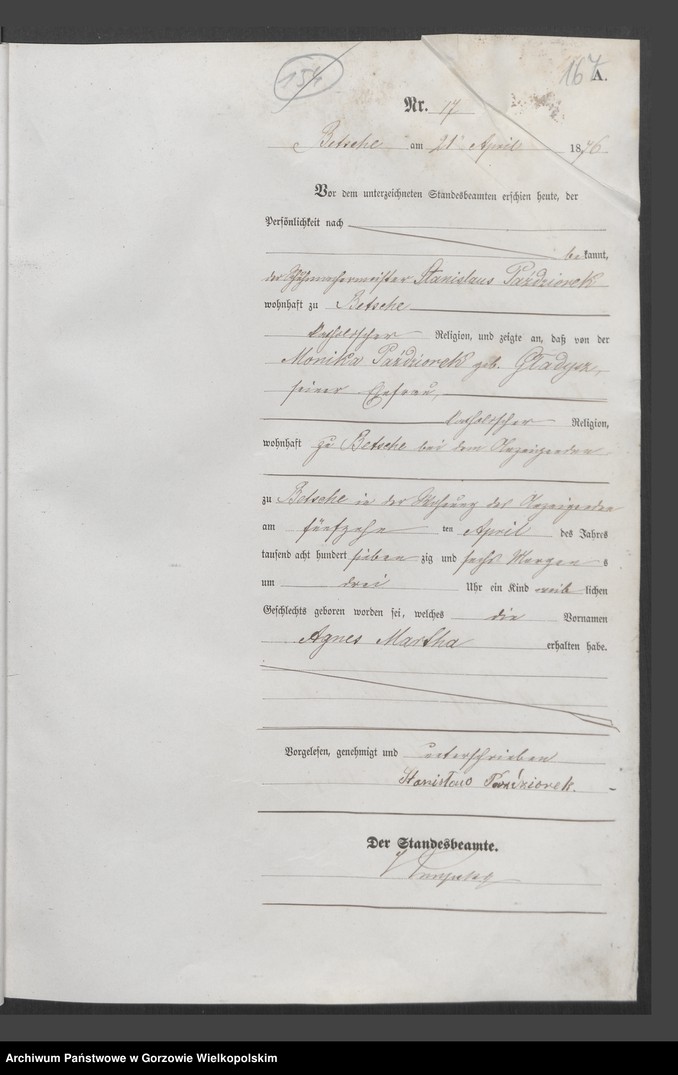 154
167 A.
Nr. 17
Betsche am 21 April 1876
Vor dem unterzeichneten Standesbeamten erschien heute, der
Persönlichkeit nach
bekannt,
der Schuhmachermeister Stanislaus Paździorek
wohnhaft zu Betsche
katholischer Religion, und zeigte an, daß von der
Monika Paździorek geb. Gładysz,
seiner Ehefrau,
katholischer Religion,
wohnhaft zu Betsche bei dem Anzeigenden
zu Betsche in der Wohnung des Anzeigenden
am fünfzehn ten April des Jahres
tausend acht hundert sieben zig und sechs Morgen s
um drei Uhr ein Kind weib lichen
Geschlechts geboren worden sei, welches die Vornamen
Agnes Martha erhalten habe.
Vorgelesen, genehmigt und unterschrieben
Stanisław Paździorek.
Der Standesbeamte.